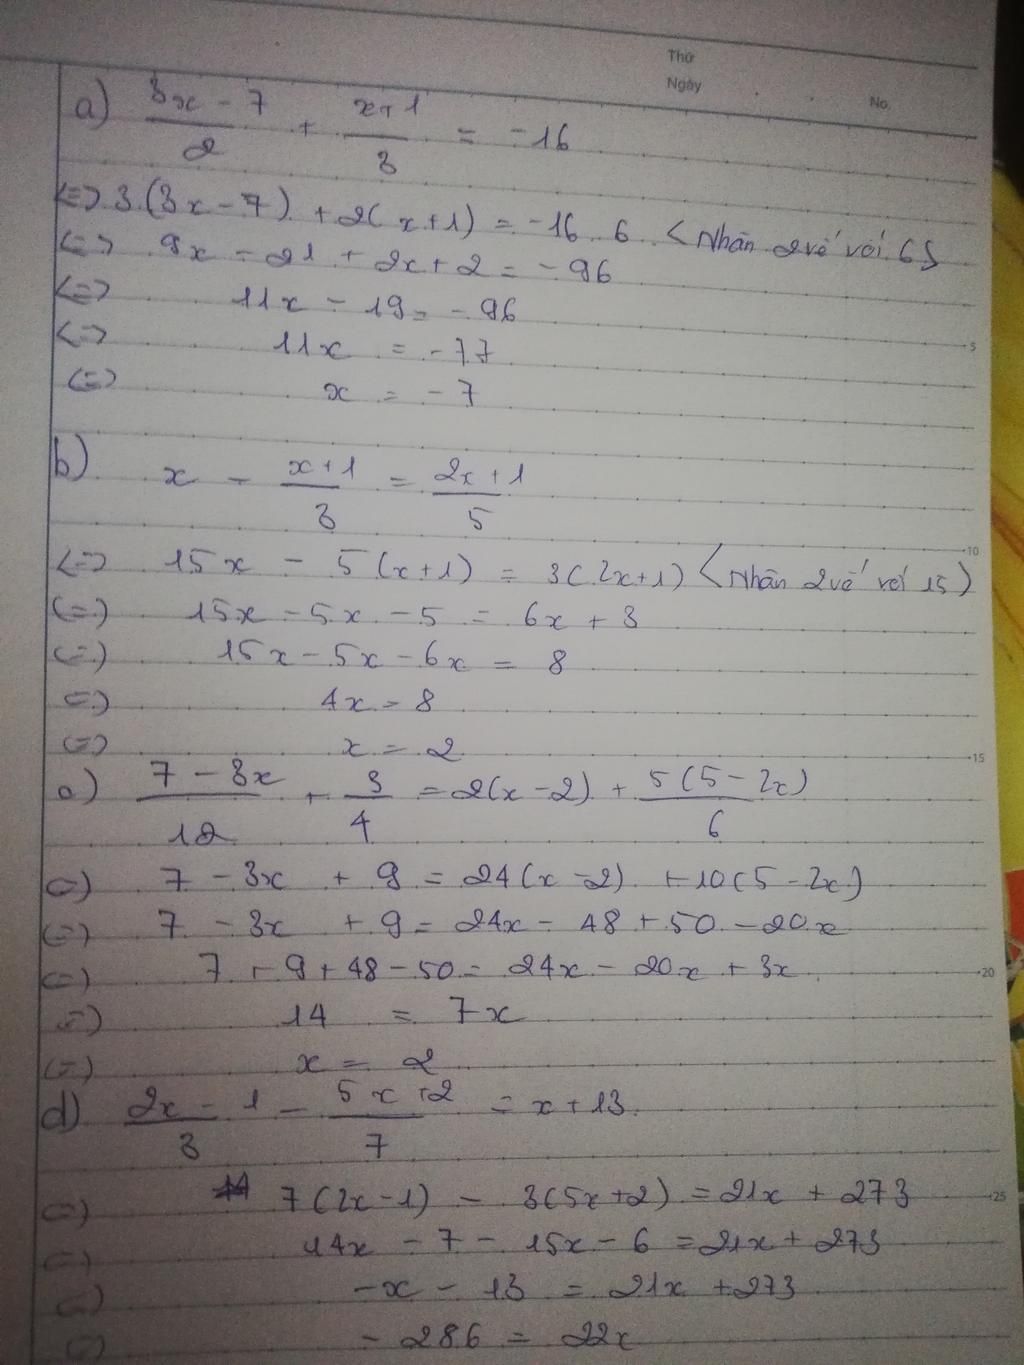 Thứ
Ngày
No.
a) (3x - 7)/2 + (x+1)/3 = -16
<=> 3.(3x - 7) + 2(x+1) = -16.6 <Nhân 2 vế với 6>
<=> 9x - 21 + 2x + 2 = -96
<=> 11x - 19 = -96
<=> 11x = -77
<=> x = -7
b) x - (x+1)/3 = (2x+1)/5
<=> 15x - 5(x+1) = 3(2x+1) <Nhân 2 vế với 15)
<=> 15x - 5x - 5 = 6x + 3
<=> 15x - 5x - 6x = 8
<=> 4x = 8
<=> x = 2
c) (7 - 3x)/12 + 3/4 = 2(x-2) + 5(5-2x)/6
<=> 7 - 3x + 9 = 24(x-2) + 10(5-2x)
<=> 7 - 3x + 9 = 24x - 48 + 50 - 20x
<=> 7 + 9 + 48 - 50 = 24x - 20x + 3x
<=> 14 = 7x
<=> x = 2
d) (2x - 1)/3 - (5x+2)/7 = x + 13
<=> 7(2x-1) - 3(5x+2) = 21x + 273
<=> 14x - 7 - 15x - 6 = 21x + 273
<=> -x - 13 = 21x + 273
<=> -286 = 22x
5
10
15
20
25